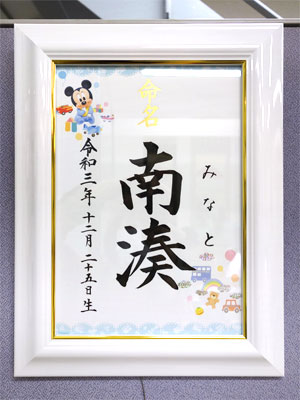 命名
みなと
南湊
令和三年 十二月 二十五日生